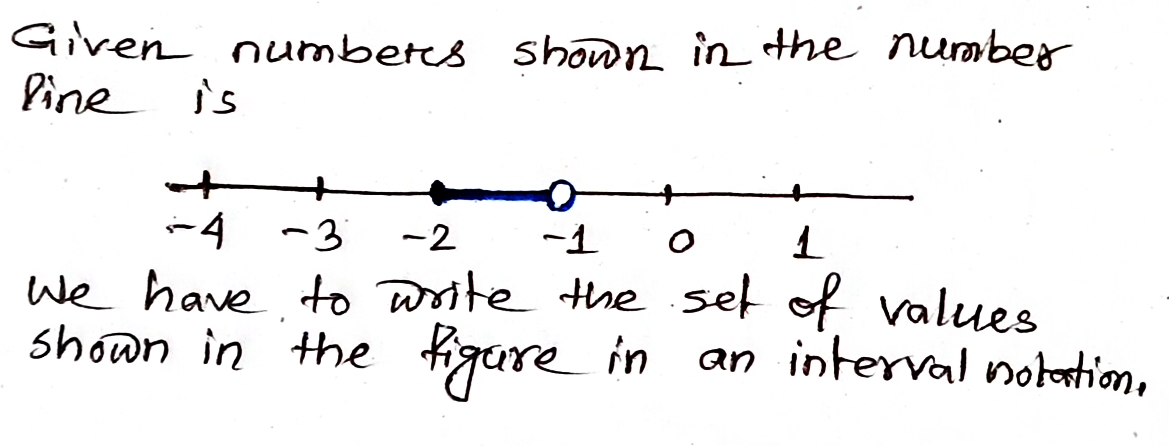 Given numbers shown in the number
line is
-4 -3 -2 -1 0 1
We have to write the set of values
shown in the figure in an interval notation.